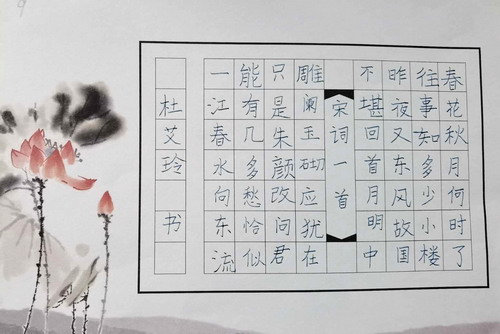 春花秋月何时了
往事知多少小楼
昨夜又东风故国
不堪回首月明中
宋词一首
雕阑玉砌应犹在
只是朱颜改问君
能有几多愁恰似
一江春水向东流
杜艾玲 书